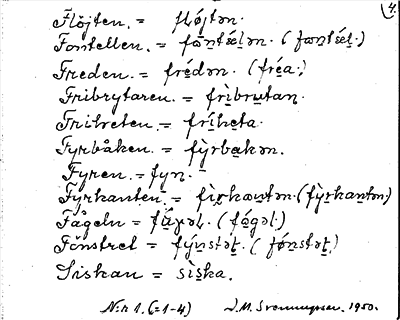 4.
Flöjten. = fló̱jtən.
Fontellen. = fo̱ntǽlən. (fɷntǽl.)
Freden. = frédən. (fréa.)
Fribrytaren. = frìbrutan.
Friheten. = fríheta.
Fyrbåken. = fỳrbakən.
Fyren. = fyn.
Fyrkanten. = fìrkantən. (fỳrkantən.)
Fågeln = fágəl. (fógəl.)
Fönstret = fýnstət. (fónstət.)
Siskan = sìska.
N:r 1. (=1-4) J. M. 1950.